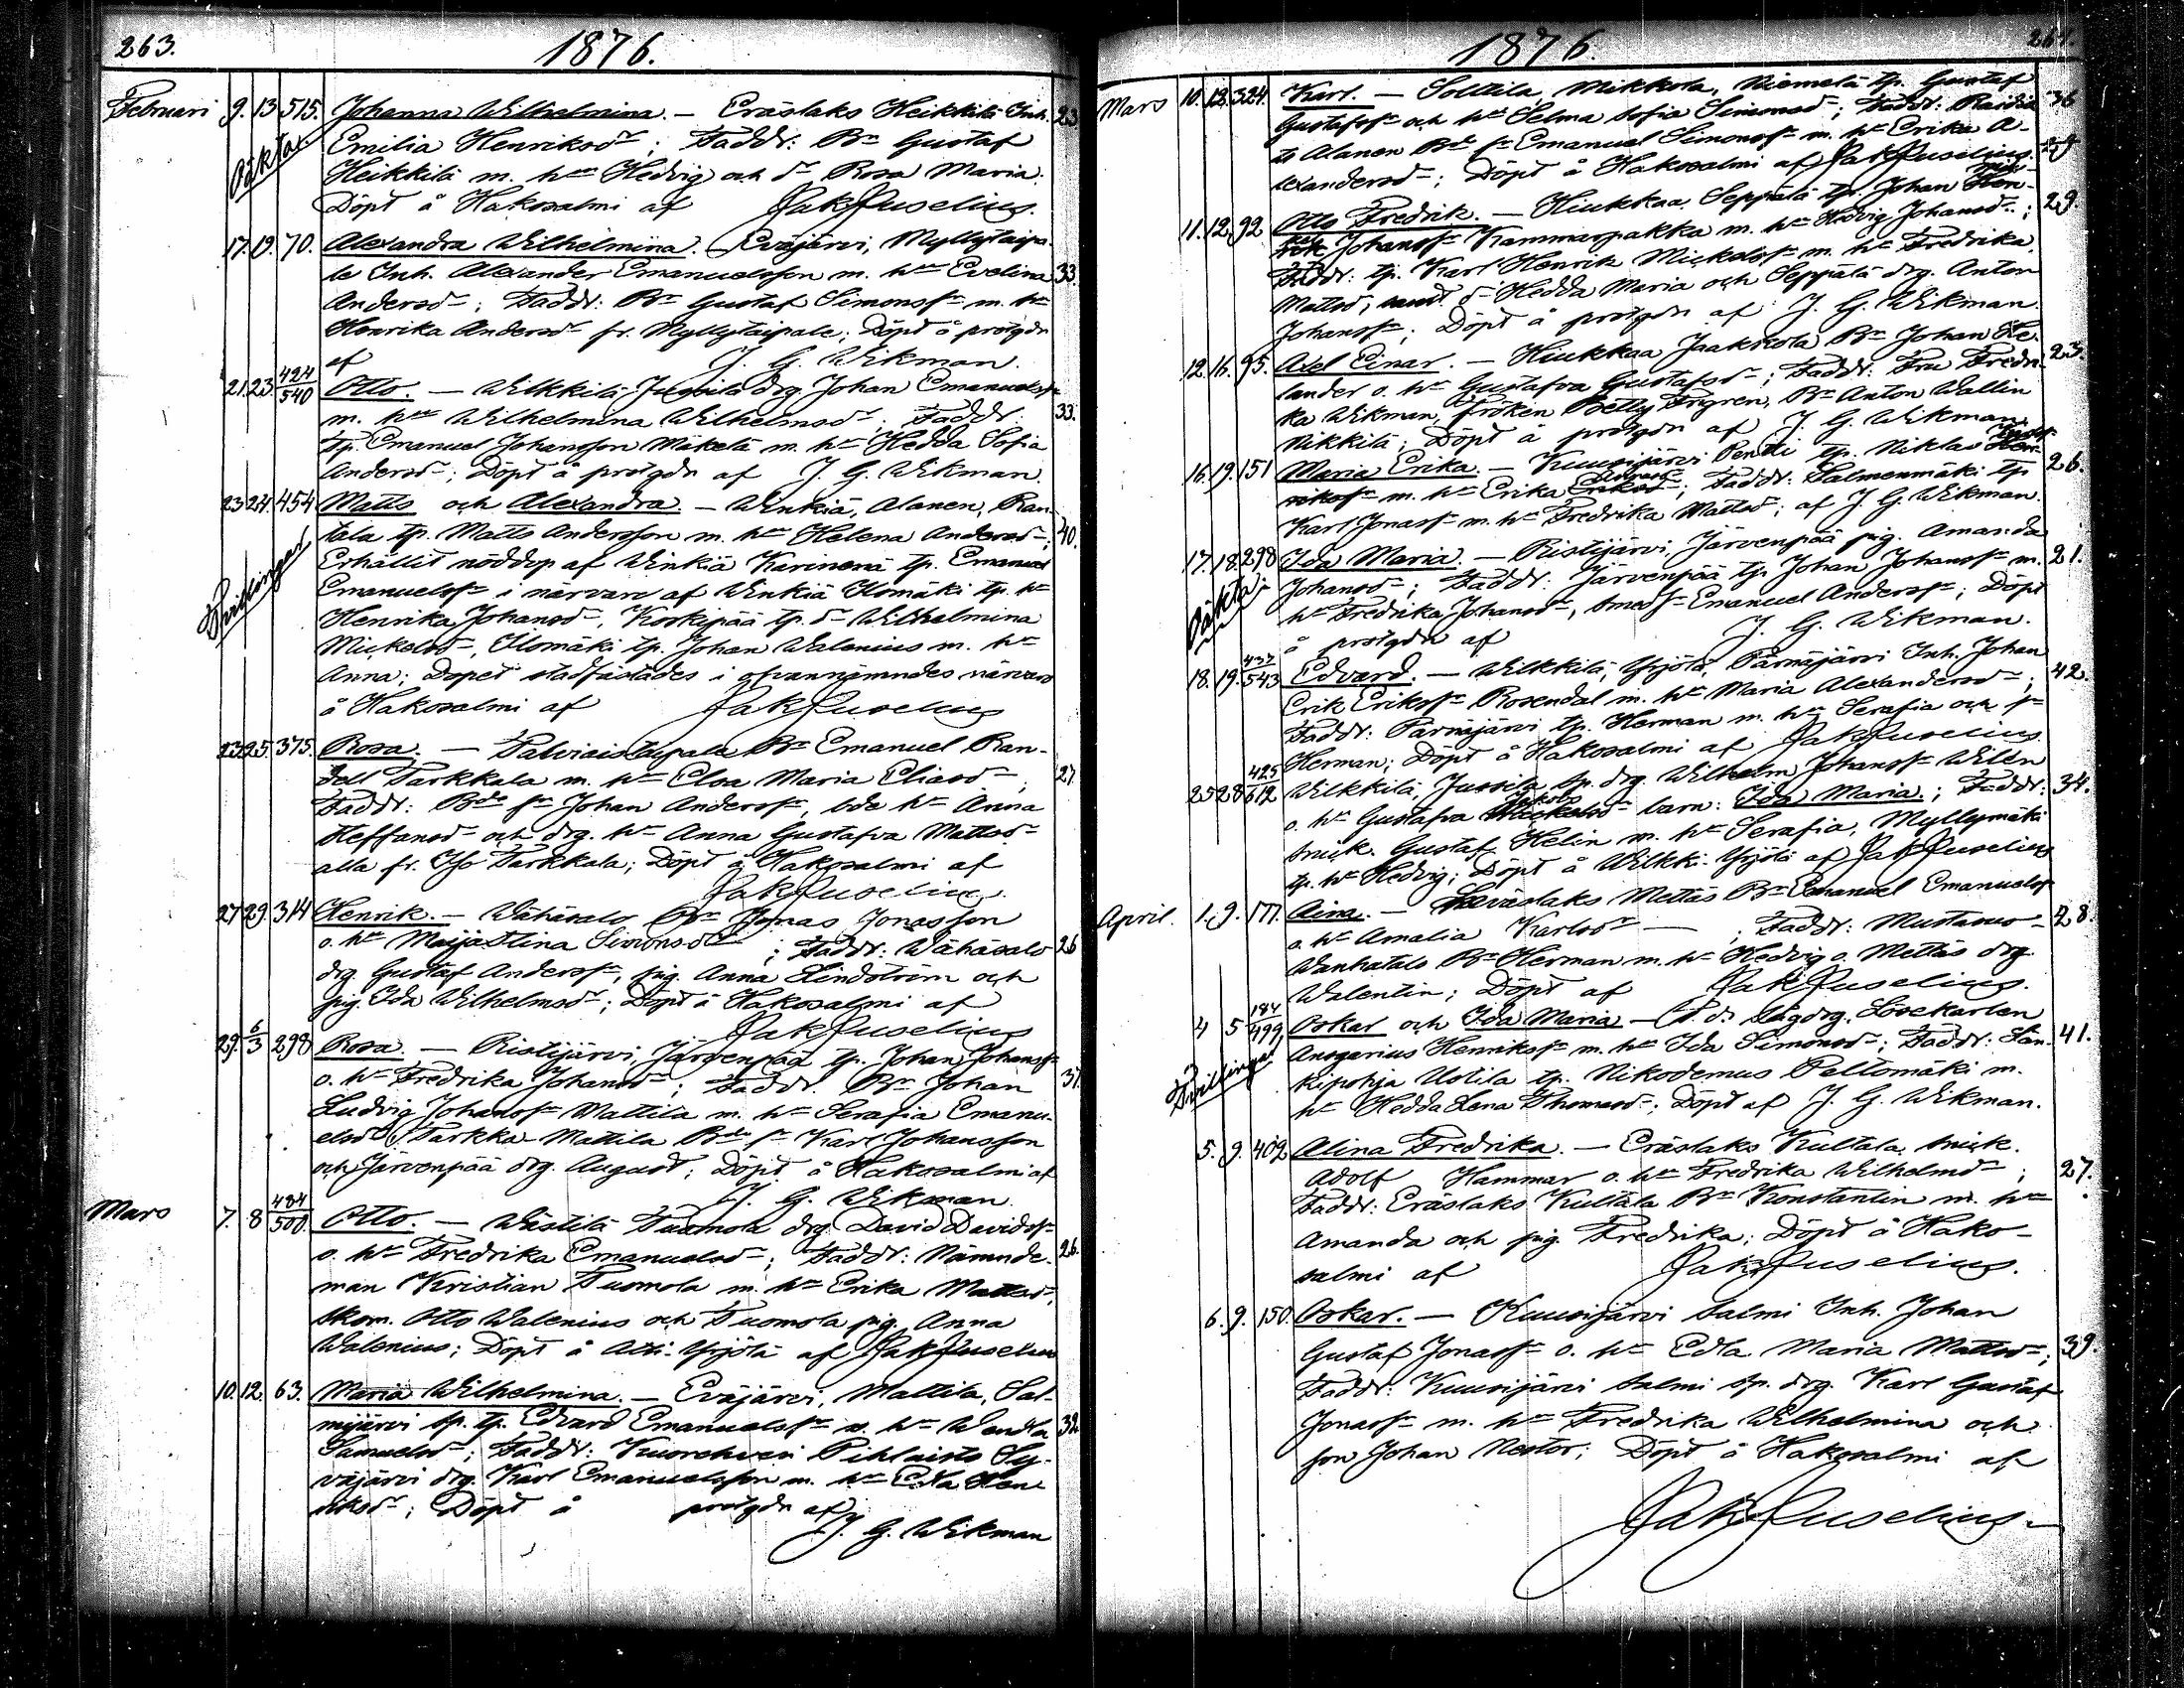 263.
1876.
Februari 9. 13 515. Johanna Wilhelmina. — Eräslaks Heikkilä Inh. 23.
Oäkta. Emilia Henriksdr; Faddr: Bn Gustaf
Heikkilä m. hu Hedvig och dr Rosa Maria.
Döpt å Hakosalmi af Jak Juselius.
17. 19. 70. Alexandra Wilhelmiina. — Eväjärvi, Myllytaipa-
le Inh. Alexander Emanuelsson m. hu Evelina 33.
Andersdr; Faddr: Bn Gustaf Simonssn m. hu
Henrika Andersdr fr. Myllytaipale; Döpt å prostgdn
af J. G. Wikman.
21. 23. 424/540 Otto. — Wilkkilä Jussila drg. Johan Emanuelssn
m. hu Wilhelmina Wilhelmsdr; Faddr: 33.
tp. Emanuel Johansson Mäkelä m. hu Hedda Sofia
Andersdr; Döpt å prostgdn af J. G. Wikman.
23 24. 454 Matts och Alexandra. — Winkiä, Alanen, Ran-
tala tp. Matts Andersson m. hu Helena Andersdr; 40.
Tvillingar Erhållit nöddop af Winkiä Karinemä tp. Emanuel
Emanuelssn i närvaro af Winkiä Ilomäki tp. hu
Henrika Johansdr, Koskipää tp. dr Wilhelmina
Mickelsdr, Ilomäki tp. Johan Walenius m. hu
Anna; Dopet stadfästades i ofvannämndes närvaro
å Hakosalmi af Jak Juselius
23. 25. 375. Rosa. — Palviaistaipale Bn Emanuel Ran-
dell Tarkkala m. hu Elsa Maria Eliasdr; 27.
Faddr: Bde sn Johan Anderssn, bde hu Anna
Steffansdr och drg. hu Anna Gustafva Mattsdr
alla fr. Iso Tarkkala; Döpt å Hakosalmi af
Jak Juselius.
27 29. 314 Henrik. — Wähäsalo Bn Jonas Jonasson
o. hu Maija Stina Simonsdr; Faddr: Wähäsalo 26
drg. Gustaf Anderssn, pig. Anna Lindström och
pig. Ida Wilhelmsdr; Döpt å Hakosalmi af
Jak Juselius
29. 6/3 298 Rosa. — Ristijärvi, Järvenpää tp. Johan Johanssn
o. hu Fredrika Johansdr; Faddr. Bn Johan 37.
Ludvig Johanssn Mattila m. hu Serafia Emanu-
elsdr, Tarkka-Mattila Bde sn Karl Johansson
och Järvenpää drg. August; Döpt å Hakosalmi af
J. G. Wikman.
Mars 7. 8 484/500. Otto. — Wästilä Tuomola drg. David Davidssn
o. hu Fredrika Emanuelsdr; Faddr: Nämnde- 26.
man Kristian Tuomola m. hu Erika Mattsdr,
skom. Otto Walenius och Tuomola pig. Anna
Walenius; Döpt å Alki-Yrjölä af Jak Juselius
10. 12. 63. Maria Wilhelmina. — Eväjärvi, Mattila, Sal-
mijärvi sp. tp. Edvard Emanuelssn o. hu Wendla 32.
Samuelsdr; Faddr: Kuorehvesi Pihlaisto Sy-
väjärvi drg. Karl Emanuelsson m. hu Edla Hen-
riksdr; Döpt å prostgdn af
J. G. Wikman
1876.
264.
Mars 10. 12. 324. Karl. — Solttila, Mikkola, Niemelä tp. Gustaf
Gustafssn och hu Selma Sofia Simonsdr; Faddr: 36
Alanen Bde sn Emanuel Simonssn m. hu Erika A-
lexandersdr; Döpt å Hakosalmi af Jak Juselius.
11. 12. 92 Otto Fredrik. — Hiukkaa, Seppälä tp. Johan 29.
Johanssn Kammarpakka m. hu Hedvig Johansdr;
Faddr: tp. Karl Henrik Mickelssn m. hu Fredrika
Mattsd, samt dr Hedda Maria och Seppälä drg. Anton
Johanssn; Döpt å prostgdn af J. G. Wikman.
12. 16. 95. Axel Einar. — Hiukkaa Jaakkola Bn Johan He-
lander o. hu Gustafva Gustafsdr; Faddr: Fru Fredri- 23.
ka Wikman, fröken Betty Frigren, Bn Anton Wallin
Nikkilä; Döpt å prostgdn af J. G. Wikman.
16. 19. 151 Maria Erika. — Kuusijärvi Pentti tp. Niklas
m. hu Erika; Faddr: Salmenmäki tp. 26.
Karl Jonassn m. hu Fredrika Mattsdr; af J. G. Wikman.
17. 18. 298 Ida Maria. — Ristijärvi, Järvenpää pig. Amanda
Oäkta. Johansdr; Faddr: Järvenpää tp. Johan Johanssn m. 21.
hu Fredrika Johansdr, smedsn Emanuel Anderssn; Döpt
å prostgdn af J. G. Wikman.
18. 19. 437/543 Edvard. — Wilkkilä, Yrjölä, Pärnäjärvi Inh. Johan
Erik Erikssn Rosendal m. hu Maria Alexandersdr; 42.
Faddr: Pärnäjärvi tp. Herman m. hu Serafia och sn
Herman; Döpt å Hakosalmi af Jak Juselius
25 28 425/612 Wilkkilä, Jussila, sp. drg. Wilhelm Johanssn Wilen
o. hu Gustafva barn: Ida Maria.; Faddr: 34.
snick. Gustaf Helin m. hu Serafia, Myllymäki
tp. hu Hedvig; Döpt å Wilkki-Yrjölä af Jak Juselius
April. 1. 9. 177. Aina. — Leväslaks Mettäs Bn Emanuel Emanuelssn
o. hu Amalia Karlsdr —; Faddr: Mustamo- 28.
Wanhatalo Bn Herman m. hu Hedvig o. Mettäs drg.
Walentin; Döpt af Jak Juselius.
4 5 184/499 Oskar och Ida Maria — drg. Lövekarlen
Tvillingar Ansgarius Henrikssn m. hu Ida Simonsdr; Faddr: Län- 41.
kipohja Uotila tp. Nikodemus Peltomäki m.
hu Hedda Lena Thomasdr; Döpt af J. G. Wikman.
5. 9. 402 Alina Fredrika. — Eräslaks Kultala, snick.
Adolf Hammar o. hu Fredrika Wilhelmsd; 27.
Faddr: Eräslaks Kultala Bn Konstantin m. hu
Amanda och pig. Fredrika; Döpt å Hako-
salmi af Jak Juselius.
6. 9. 150. Oskar. — Kuusijärvi Salmi Inh. Johan
Gustaf Jonassn o. hu Edla Maria Mattsdr; 39.
Faddr: Kuusijärvi Salmi sp. drg. Karl Gustaf
Jonassn m. hu Fredrika Wilhelmina och
son Johan Nestor; Döpt å Hakosalmi af
Jak Juselius.